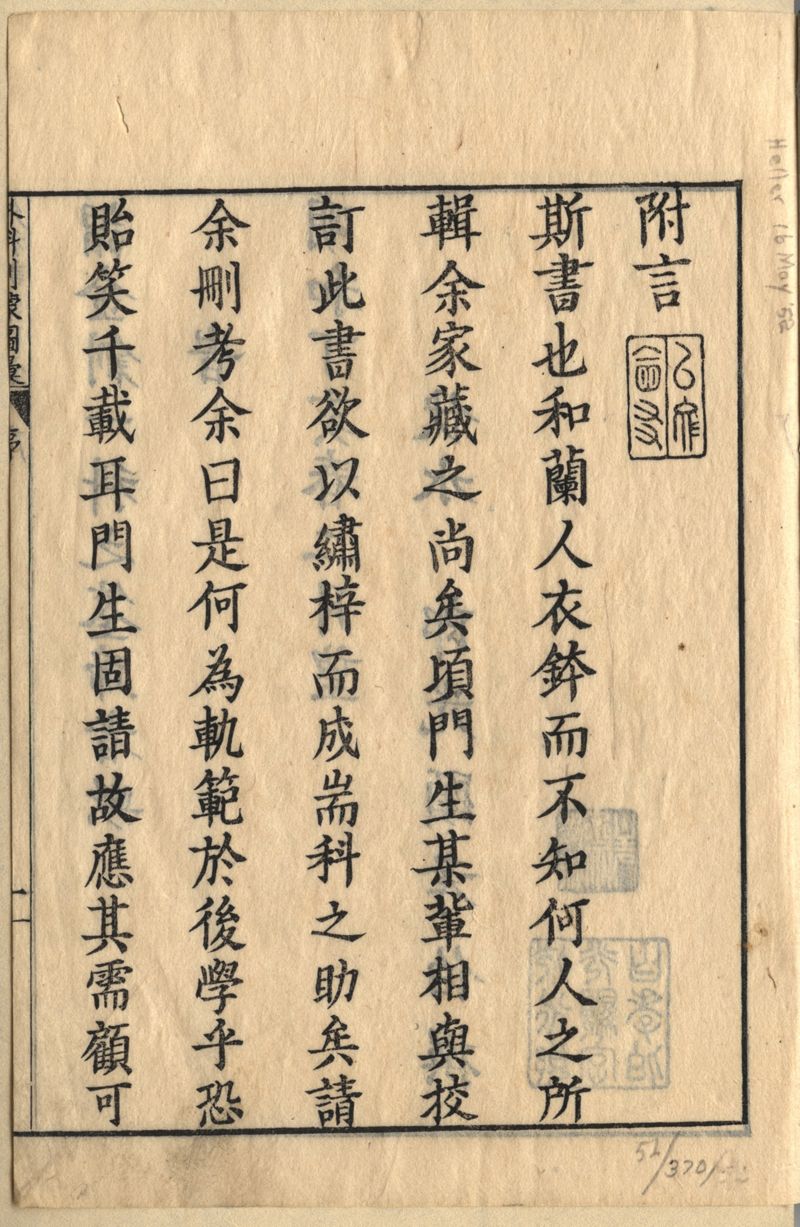 附言
斯書也和蘭人衣鉢而不知何人之所
輯余家藏之尚矣頃門生某輩相與挍
訂此書欲以繡梓而成耑科之助矣請
余刪考余曰是何為軌範於後學乎恐
貽笑千載耳門生固請故應其需顧可
序
一
Heller 16 May
51/370/